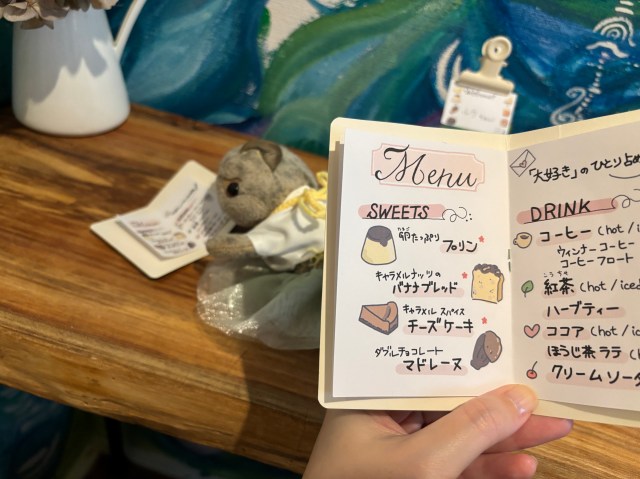 Menu
SWEETS
卵たっぷり
たまご
プリン
キャラメルナッツの
バナナブレッド
キャラメル スパイス
チーズケーキ
ダブルチョコレート
マドレーヌ
「大好き」のひとり占め
DRINK
コーヒー (hot / ic
ウィンナーコーヒー
コーヒーフロート
こうちゃ
紅茶 (hot / iced
ハーブティー
ココア (hot / iced
ほうじ茶ラテ (
クリームソーダ